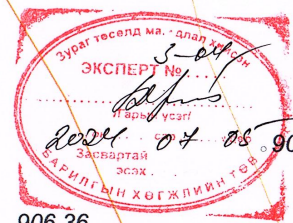 Зураг төсөлд ма. дал хийсэн
3-04
ЭКСПЕРТ №
/Гарын үсэг/
2024 07 05 90
Засвартай
эсэх
БАРИЛГЫН ХӨГЖЛИЙН ТӨВ
906.36